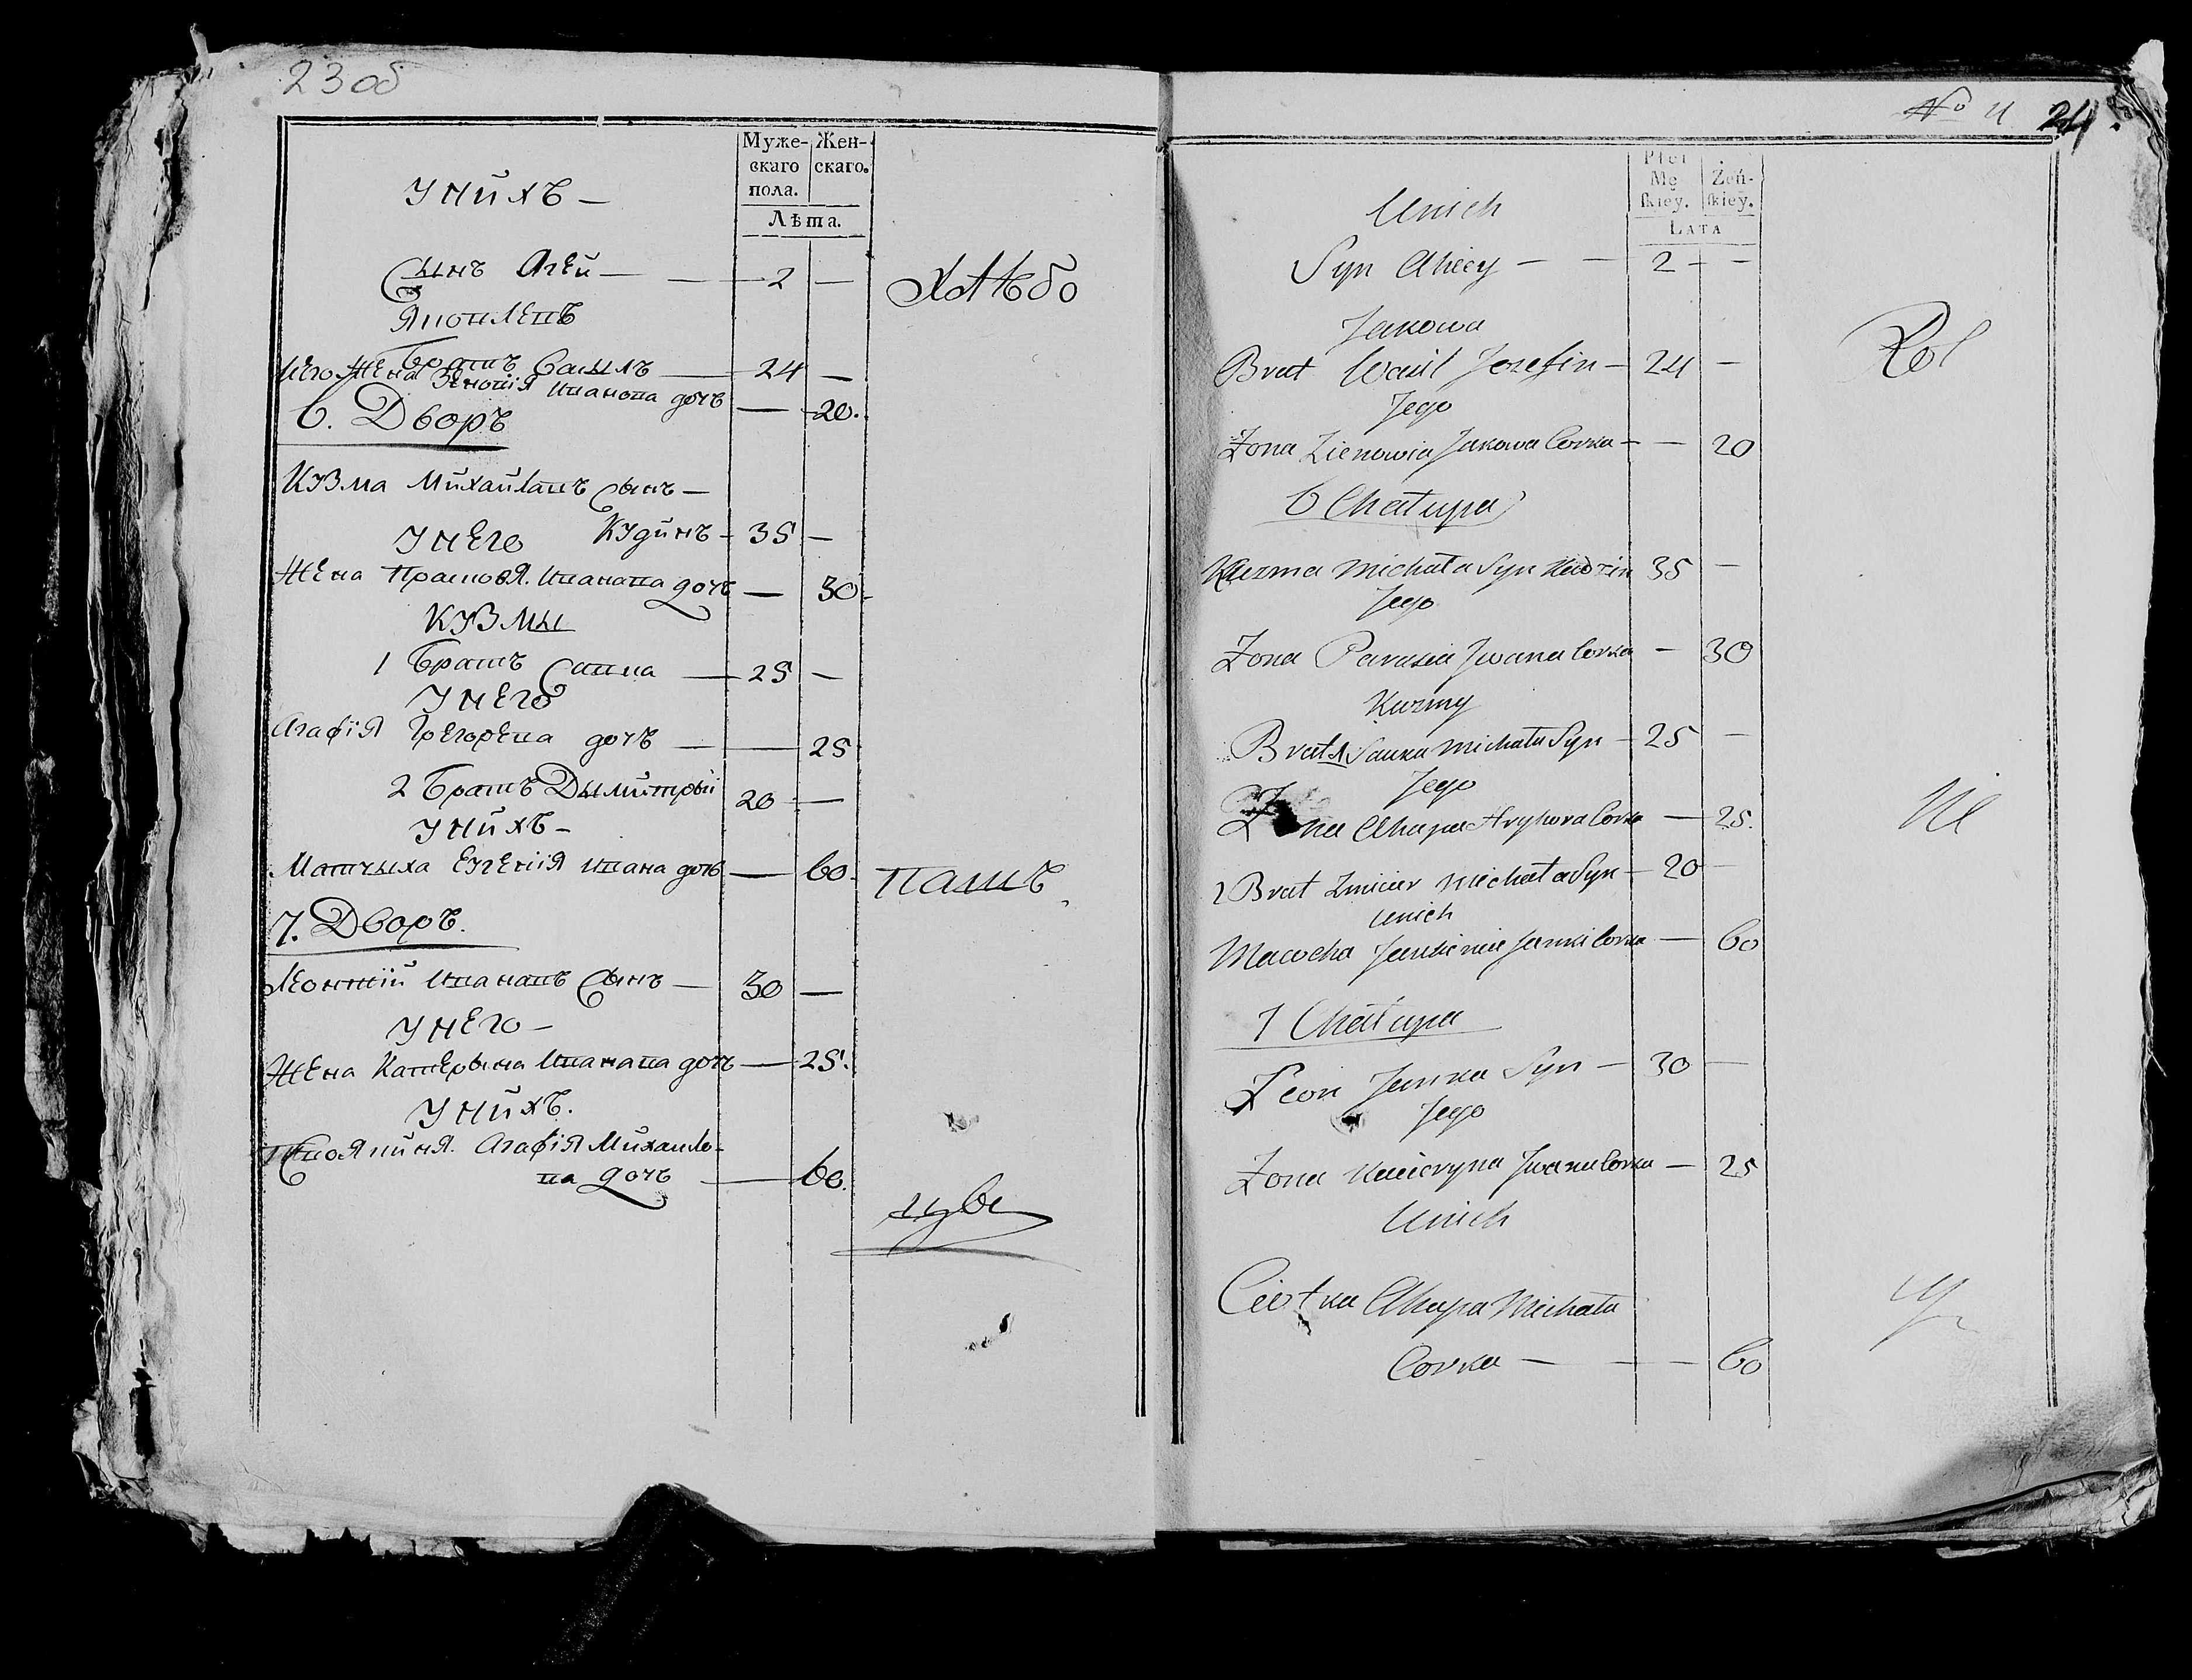 23 об
Муже- Жен-
скаго скаго.
пола.
Лѣта.
Унихъ —
Сынъ Агей — 2 —
Хлѣбо
Яковлевъ
Братъ Василъ — 24 —
Его Жена Зѣновія Иванова дочъ — 20.
6. Дворъ
Кузма Михайлавъ Сынъ —
Кудинъ - 35 —
У него
Жена Прасковя. Иванава дочъ — 30.
Кузмы
1 Братъ Савка — 25 —
У него
Агафія Грегорева дочъ — 25
2 Братъ Дымитрый 20 —
Унихъ —
Матчыха Евгенія Ивана дочъ — 60.
пашъ
7. Дворъ.
Леонтій Иванавъ Сынъ — 30 —
У него —
Жена Катерына Иванава дочъ — 25.
Унихъ.
Агафія Михайло-
ва дочъ — 60.
№ 11 24.
Płci
Mę Żeń-
skiey. skiey.
LATA
Unich
Syn Ahiey — — 2 — —
Jakowa
Brat Wasil Jozefin — 24 —
Rol
Jego
Żona Zienowia Jakowa Corka — — 20
6 Chałupa
Kuzma Michała Syn Kudzin 35 —
Jego
Żona Parasia Jwana Corka — 30
Kuzmy
Brat 1 Sauka Michała Syn — 25 —
Jego
Żona Ahapa Hryhora Corka — 25.
Ni
2 Brat Zmicier Michała Syn — 20 —
Unich
Macocha Jauhienia Janki Corka — 60
7 Chałupa
Leon Janka Syn — 30 —
Jego
Żona Kacieryna Jwana Corka — 25
Unich
Ciotka Ahapa Michała
Corka — — — 60